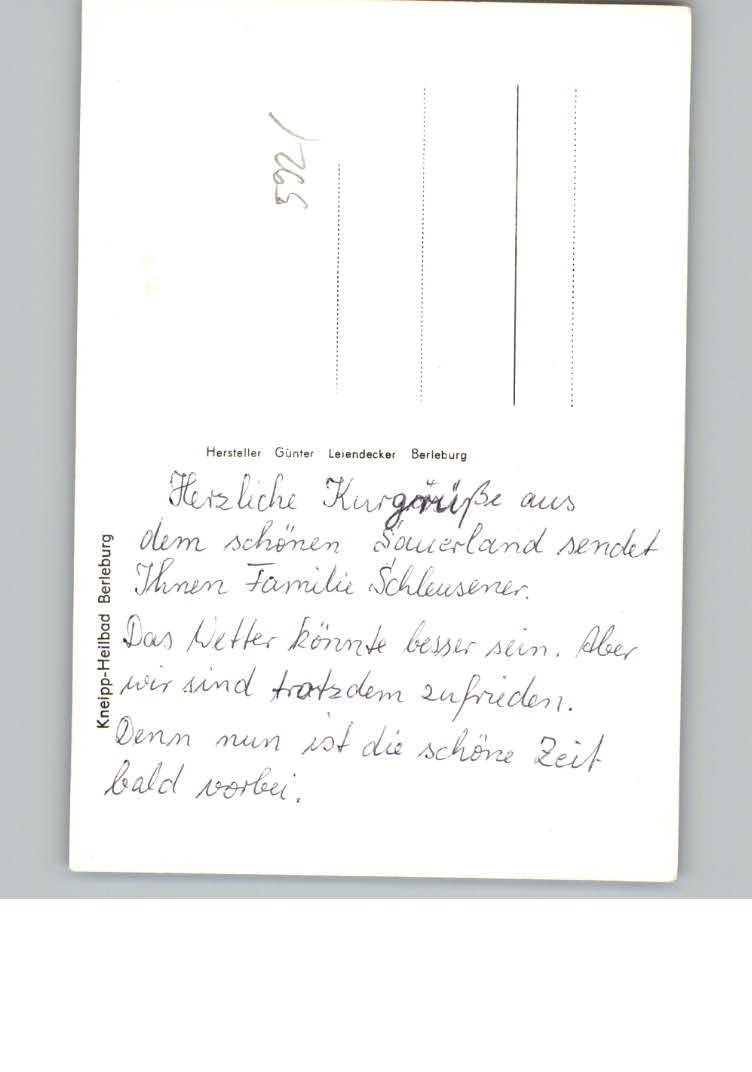 592/
Hersteller Günter Leiendecker Berleburg
Kneipp-Heilbad Berleburg
Herzliche Kurgrüße aus
dem schönen Sauerland sendet
Ihnen Familie Schleusener.
Das Wetter könnte besser sein. Aber
wir sind trotzdem zufrieden.
Denn nun ist die schöne Zeit
bald vorbei.